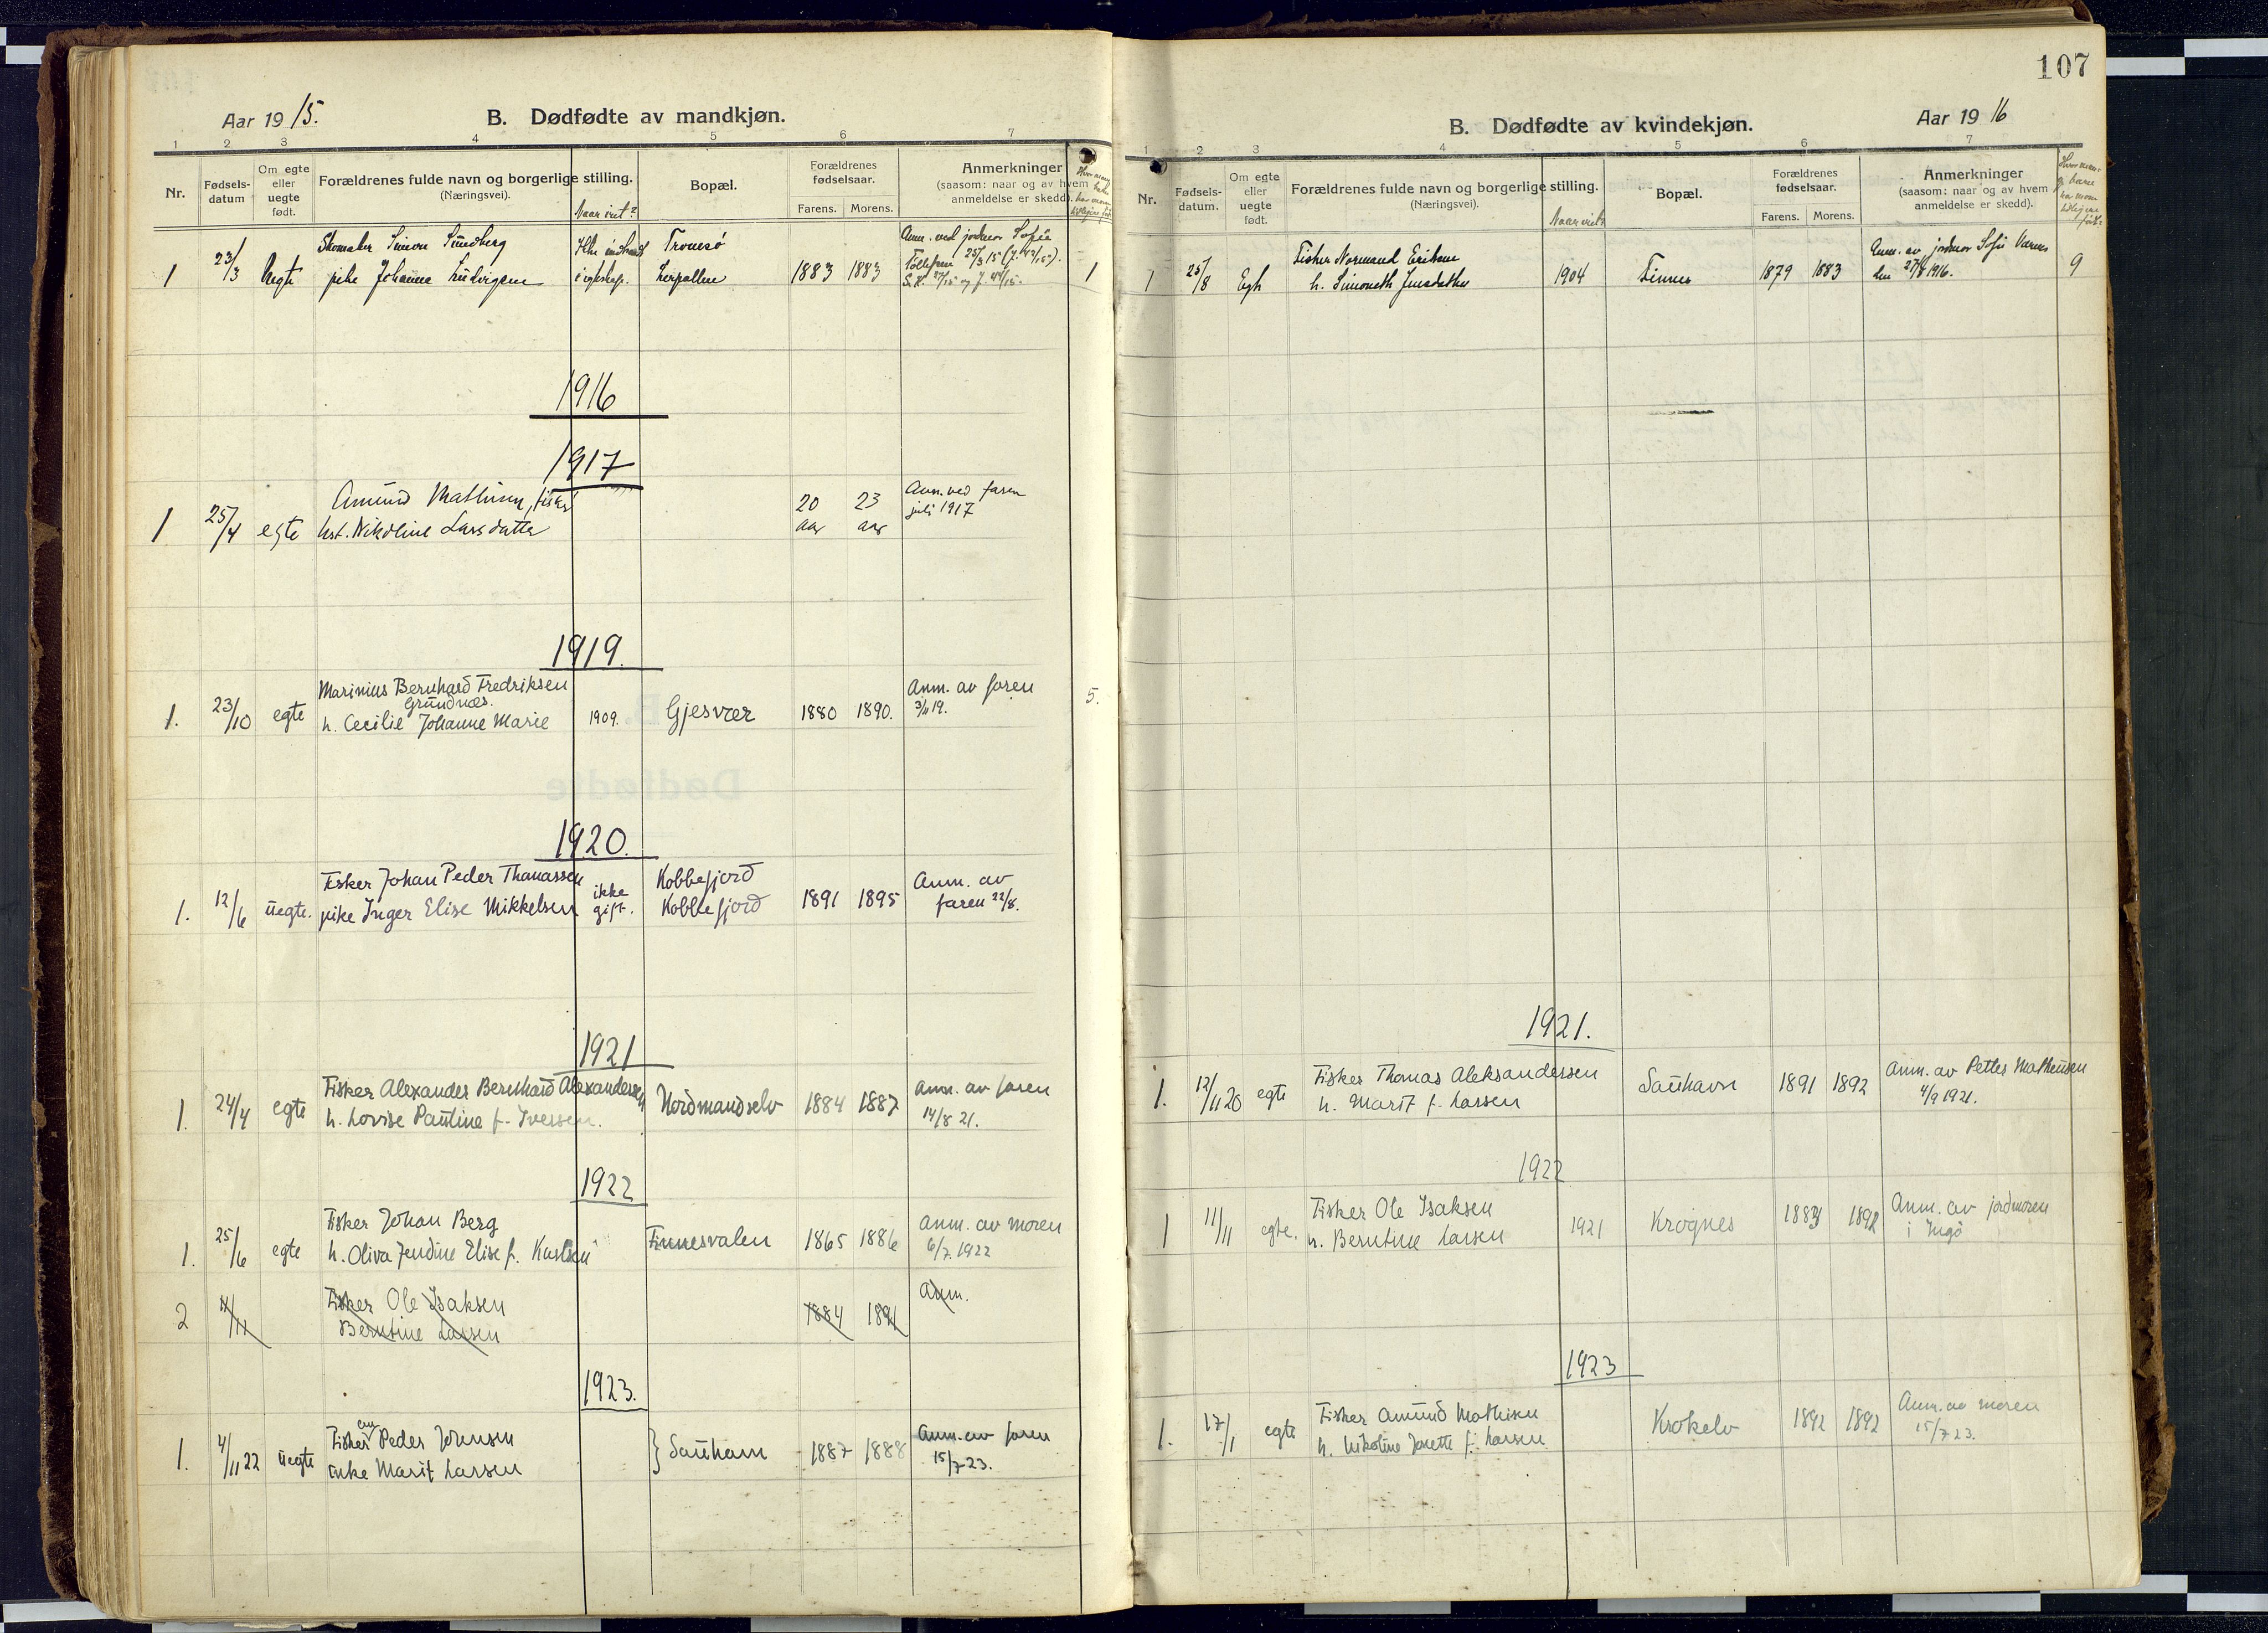 107
Aar 1915.
B. Dødfødte av mandkjøn.
1 2 3 4 5 6 7
Nr.
Fødsels-
datum
Om egte
eller
uegte
født.
Forældrenes fulde navn og borgerlige stilling.
(Næringsvei).
Naar viet?
Bopæl.
Forældrenes
fødselsaar.
Farens. Morens.
Anmerkninger
(saasom: naar og av hvem
anmeldelse er skedd).
1 23/3 Uegte
Skomaker Simon Sundberg
pike Johanna Ludvigsen
Tromsø
1883 1883
Anm. ved jordmor Sofie
1
1916
1917
1 25/4 egte
Amund Mathisen, fisker
hst. Nikoline Larsdatter
20 aar 23 aar
Anm. ved faren
juli 1917
1919.
1. 23/10 egte
Marinius Bernhard Fredriksen
Grundnæs.
h. Cecilie Johanne Marie
1909.
Gjesvær
1880 1890.
Anm. av faren
3/11 19.
5.
1920.
1. 12/6 uegte.
Fisker Johan Peder Thomassen
pike Inger Elise Mikkelsen
ikke
gift.
Kobbefjord
Kobbefjord
1891 1895
Anm. av
faren 22/8.
1921
1. 24/4 egte
Fisker Alexander Bernhard Alexandersen
h. Lovise Pauline f. Iversen.
Nordmandselv
1884 1887
Anm. av faren
14/8 21.
1922
1. 25/6 egte
Fisker Johan Berg
h. Oliva Jendine Elise f. Karlsen
Finnesvalen
1865 1886
Anm. av moren
6/7. 1922
2 11/11
Fisker Ole Isaksen
Berntine Larsen
1884 1891
Anm.
1923.
1. 4/11 22 uegte
Fisker Peder Johnsen
enke Marit Larsen
Sauhavn
1887 1888
Anm. av faren
15/7 23.
B. Dødfødte av kvindekjøn.
Aar 1916
1 2 3 4 5 6 7
Nr.
Fødsels-
datum.
Om egte
eller
uegte
født.
Forældrenes fulde navn og borgerlige stilling.
(Næringsvei).
Naar viet
Bopæl.
Forældrenes
fødselsaar.
Farens. Morens.
Anmerkninger
(saasom: naar og av hvem
anmeldelse er skedd).
1 25/8 Egte
Fisker Normand Eriksen
h. Simoneth Jensdatter
1904
Finnes
1879 1883
Anm. av jordmor Sofie Varnes
den 27/8 1916.
9
1921.
1. 12/11 20 egte
Fisker Thomas Aleksandersen
h. Marit f. Larsen
Sauhavn
1891 1892
Anm. av Petter Matheusen
4/9 1921.
1922
1 11/11 egte.
Fisker Ole Isaksen
h. Berntine Larsen
1921
Krognes
1892
Anm. av jordmoren
i Ingö
1923
1. 17/1 egte
Fisker Amund Mathisen
h. Nikoline Jonette f. Larsen
Krokelv
1892 1892
Anm. av moren
15/7 23.